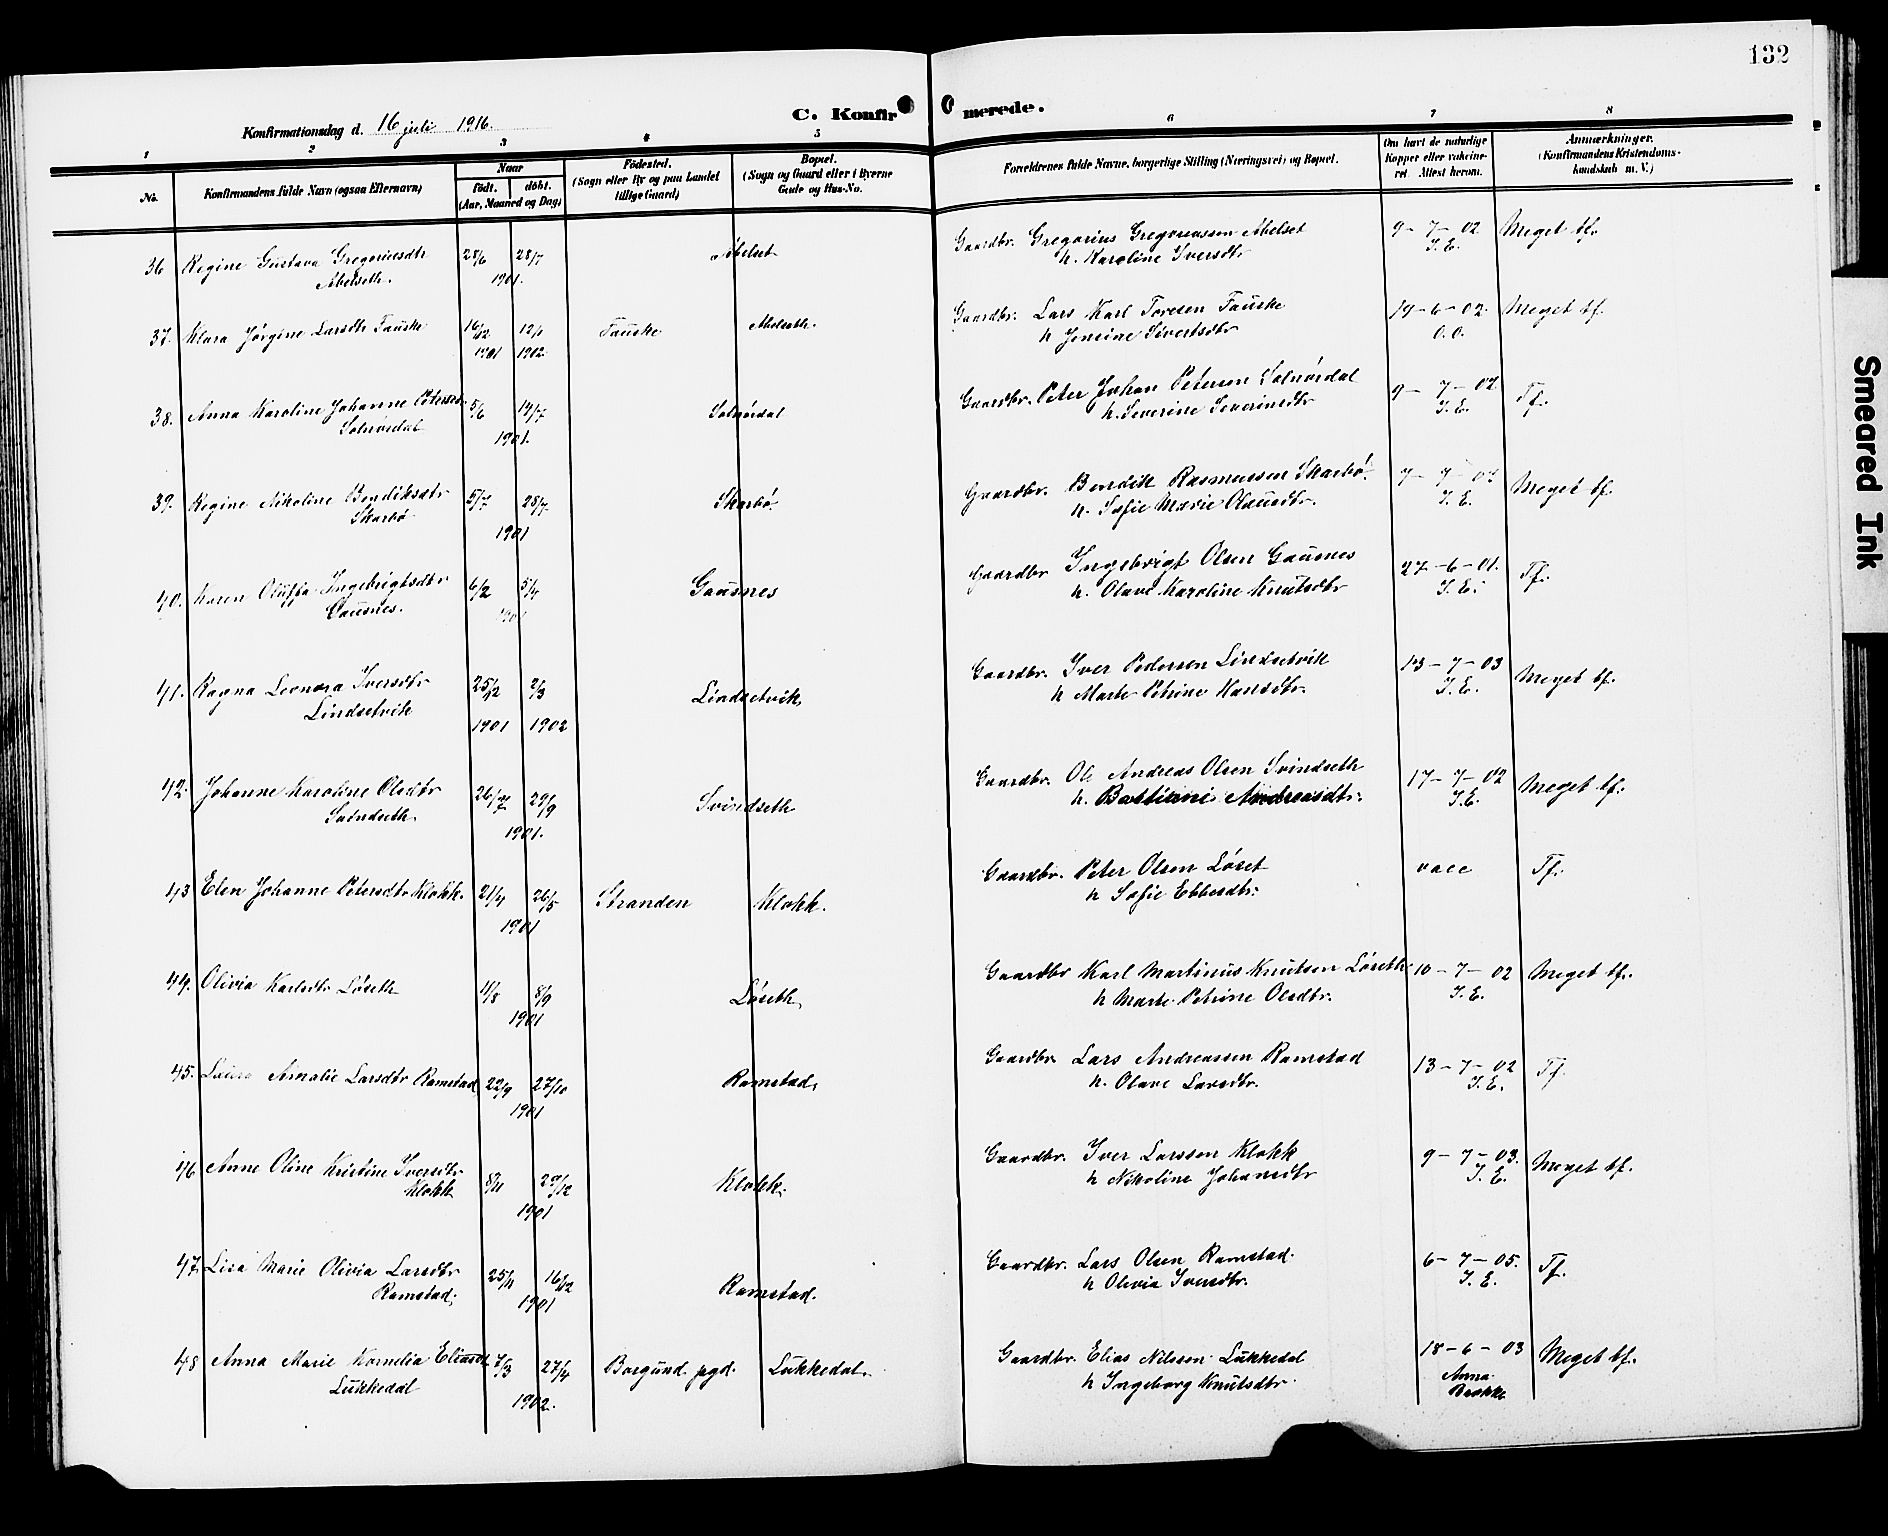 132
Konfirmationsdag d. 16 juli 1916.
C. Konfirmerede.
1 2 3 4 5 6 7 8
No.
Konfirmandens fulde Navn (ogsaa Efternavn)
Naar
födt. döbt.
(Aar, Maaned og Dag)
Födested.
(Sogn eller By og paa Landet
tillige Gaard)
Bopæl.
(Sogn og Gaard eller i Byerne
Gade og Hus-No.
Forældrenes fulde Navne, borgerlige Stilling (Næringsvei) og Bopæl.
Om havt de naturlige
Kopper eller vakcine-
ret. Attest herom.
Anmærkninger.
(Konfirmandens Kristendoms-
kundskab m. V.)
36 Regine Gustava Gregoriusdtr 28/6 28/7 Abelset Gaardbr. Gregorius Gregoriussen Abelset 9-7-02 Meget tf.
Abelseth. 1901. h. Karoline Iversdtr I. E.
37. Klara Jørgine Larsdtr Fauske 16/12 12/1 Fauske Abelseth. Gaardbr. Lars Karl Toresen Fauske 19-6-02. Meget tf.
1901 1902. h Jensine Sivertsdtr O. O.
38. Anna Karoline Johanne Petersdtr 5/6 14/7 Solnørdal Gaardbr. Peter Johan Petersen Solnørdal 9-7-02 Tf.
Solnørdal 1901. h. Severine Severinsdtr I. E.
39. Regine Nikoline Bendiksdtr 5/7 28/7 Skarbø Gaardbr. Bendik Rasmussen Skarbø. 7-7-02 Meget tf.
Skarbø 1901 h. Sofie Marie Olausdtr. I. E.
40. Karen Oluffa Ingebrigtsdtr 6/2 5/4 Gausnes Gaardbr Ingebrigt Olsen Gausnes 27-6-01. Tf.
Gausnes. 1901 h. Olave Karoline Knutsdtr I. E.
41. Ragna Leonora Iversdtr 25/12 2/3 Lindsetvik Gaardbr. Iver Pedersen Lindsetvik 13-7-03 Meget tf.
Lindsetvik 1901 1902 h Marte Petrine Hansdtr. I. E.
42. Johanne Karoline Olsdtr 26/7 29/9 Svindseth Gaardbr. Ole Andreas Olsen Svindseth 17-7-02 Meget tf.
Svindseth. 1901. h. Bastiane Andreasdtr. I. E.
43 Elen Johanne Petersdtr Klokk. 21/4 26/5 Stranden Klokk. Gaardbr. Peter Olsen Løset vacc Tf.
1901 h Sofie Ebbesdtr.
44. Olivia Karlsdtr Løseth 4/8 8/9 Løseth Gaardbr Karl Martinus Knutsen Løseth 10-7-02 Meget tf.
1901 h Marte Petrine Olsdtr. I. E.
45. Laura Amalie Larsdtr Ramstad 22/9 27/10 Ramstad Gaardbr. Lars Andreassen Ramstad 13-7-02 Tf.
1901 h. Olave Larsdtr. I. E.
46 Anne Oline Kristine Iversdtr 8/11 29/12 Klokk. Gaardbr. Iver Larssen Klokk 9-7-03. Meget tf.
Klokk 1901 h Nikoline Johansdtr I. E.
47. Lisa Marie Olivia Larsdtr 25/11 16/12 Ramstad. Gaardbr. Lars Olsen Ramstad. 6-7-05. Tf.
Ramstad. 1901 h Olivia Iversdtr. I. E.
48 Anna Marie Kornelia Eliasdt 7/3 27/4 Borgund pgd. Lukkedal. Gaardbr. Elias Nilssen Lukkedal 18-6-03 Meget tf.
Lukkedal 1902. h Ingeborg Knutsdtr. Anna
Smeared Ink